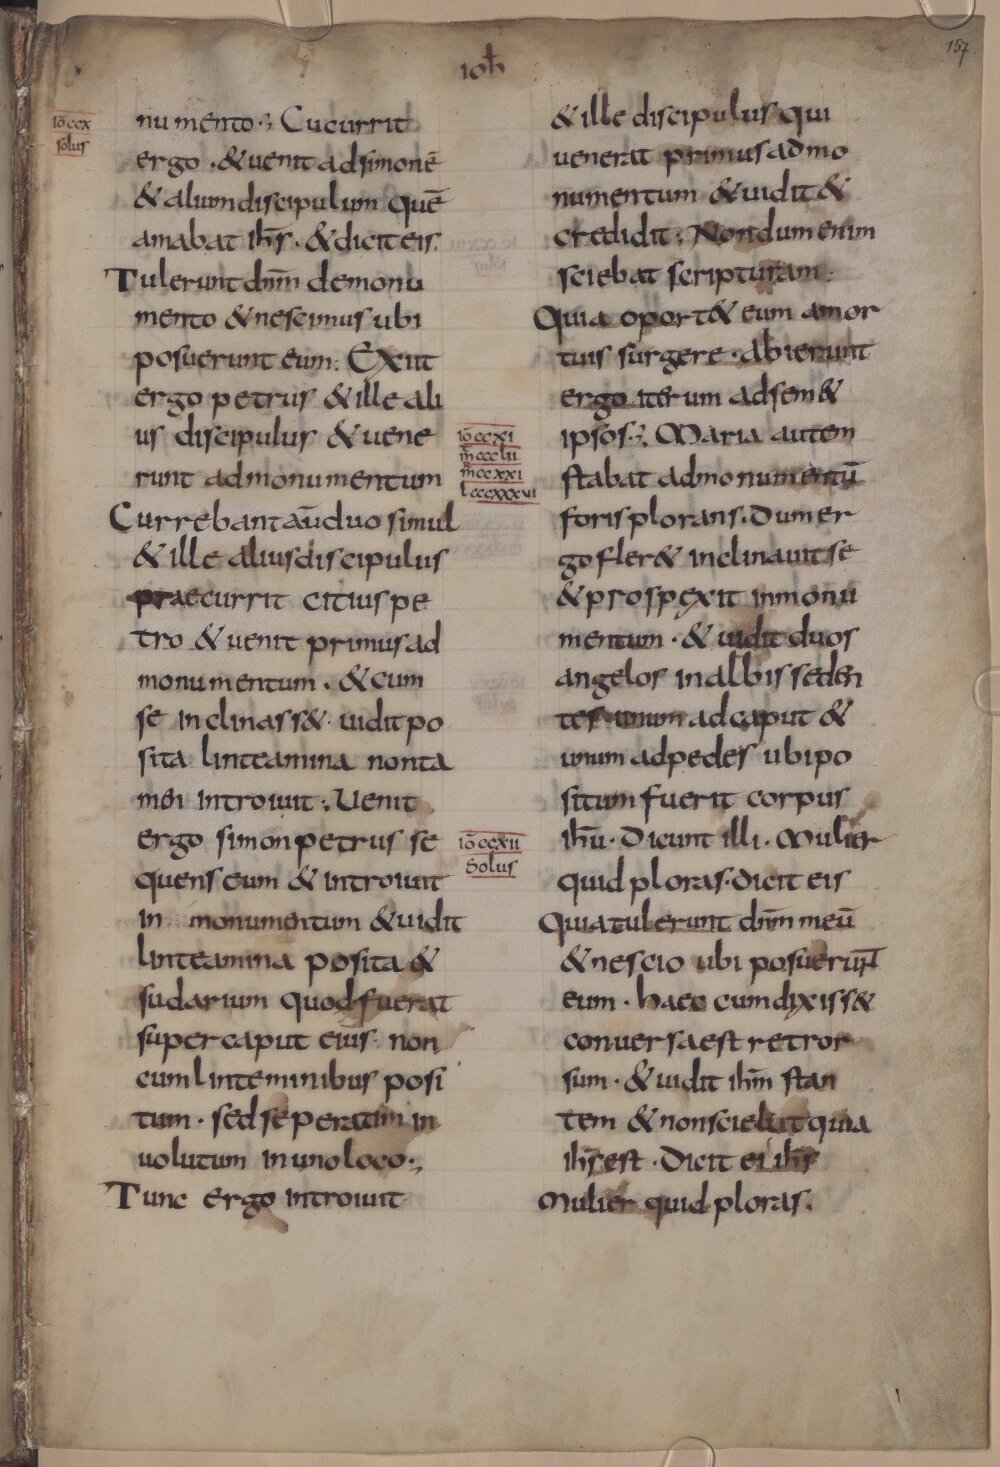 157
ioh̄
iō ccx
solus
numento·; Cucurrit
ergo · & uenit ad simonē
& alium discipulum quē
amabat ihs̄ · & dicit eis:
Tulerunt dn̄m de monu
mento & nescimus ubi
posuerunt eum; Exiit
ergo petrus & ille ali
us discipulus & uene
runt ad monumentum
Currebant aū duo simul
& ille alius discipulus
praecurrit citius pe
tro & uenit primus ad
monumentum · & cum
se inclinass& · uidit po
sita linteamina non ta
men introiuit; Uenit
ergo simon petrus se
quens eum & introiuit
in monumentum & uidit
linteamina posita &
sudarium quod fuerat
super caput eius · non
cum linteminibus posi
tum · sed seperatim in
uolutum in uno loco·;
Tunc ergo introiuit
& ille discipulus qui
uenerat primus ad mo
numentum & uidit &
credidit; Nondum enim
sciebat scripturam:
Quia oport& eum a mor
tuis surgere · abierunt
ergo iterum ad sem&
ipsos·; Maria autem
iō ccxi
m̄ ccclii
m̄ ccxxi
l cccxxxvi
stabat ad monumentū
foris plorans · Dum er
go fler& inclinauit se
& prospexit in monu
mentum · & uidit duos
angelos in albis seden
tes unum ad caput &
unum ad pedes ubi po
situm fuerit corpus
iō ccxii
Solus
ihū · Dicunt illi · Mulier
quid ploras · dicit eis
Quia tulerunt dn̄m meū
& nescio ubi posuerun̄t
eum · haec cum dixiss&
conuersa est retror
sum · & uidit ihm̄ stan
tem & non sciebat quia
ihs̄ est · Dicit ei ihs̄
Mulier quid ploras.